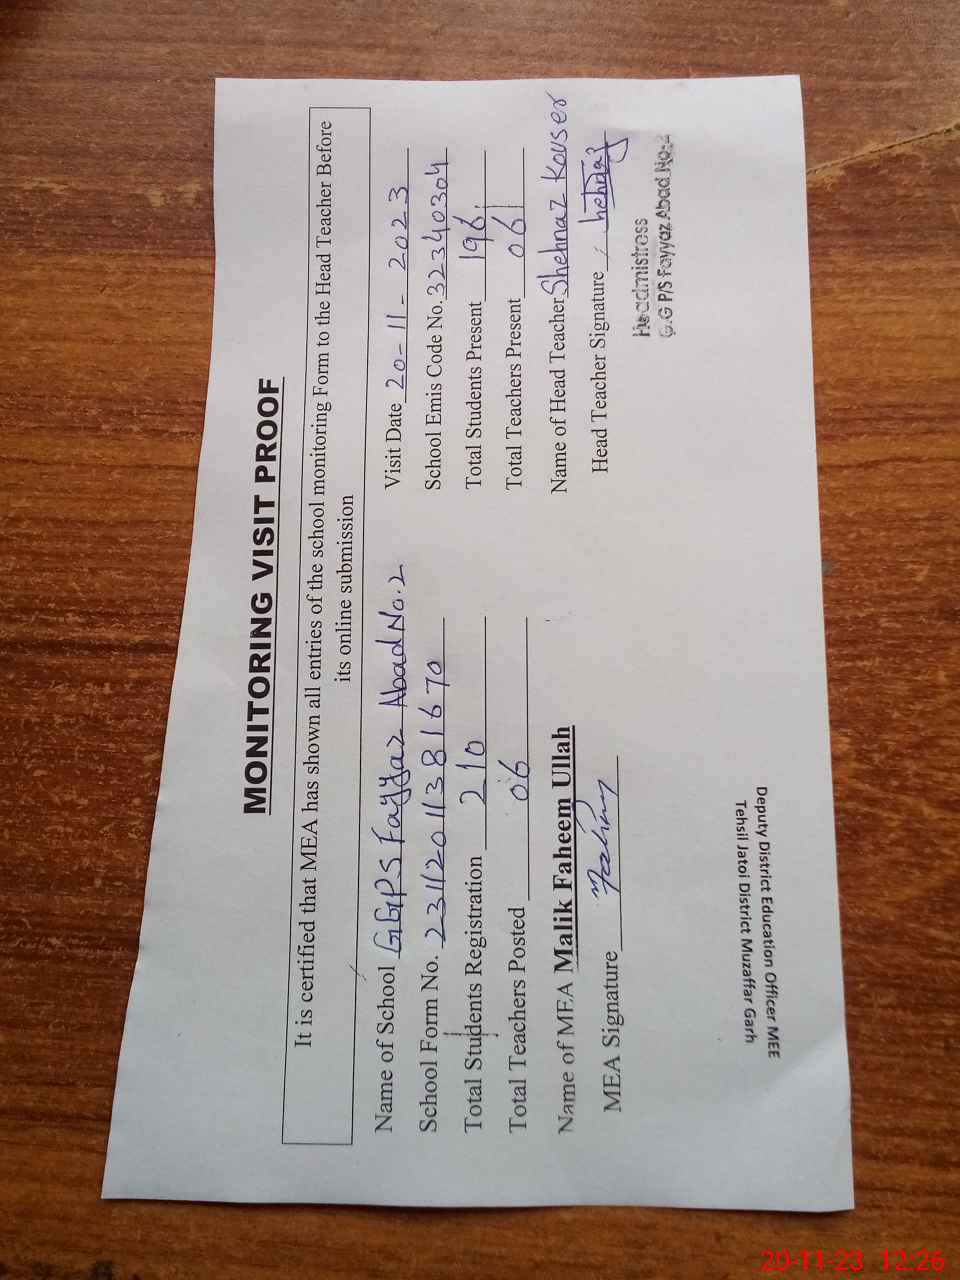 MONITORING VISIT PROOF
It is certified that MEA has shown all entries of the school monitoring Form to the Head Teacher Before
its online submission
Name of School GGPS Fayyaz Abad No.2
Visit Date 20-11-2023
School Form No. 231120113881670
School Emis Code No. 32340304
Total Students Registration 210
Total Students Present 196
Total Teachers Posted 06
Total Teachers Present 06
Name of MEA Malik Faheem Ullah
Name of Head Teacher Shehnaz Kouser
MEA Signature Fahim
Head Teacher Signature Shehnaz
Headmistress
G.G P/S Fayyaz Abad No:2
Deputy District Education Officer MEE
Tehsil Jatoi District Muzaffar Garh
20-11-23 12:26